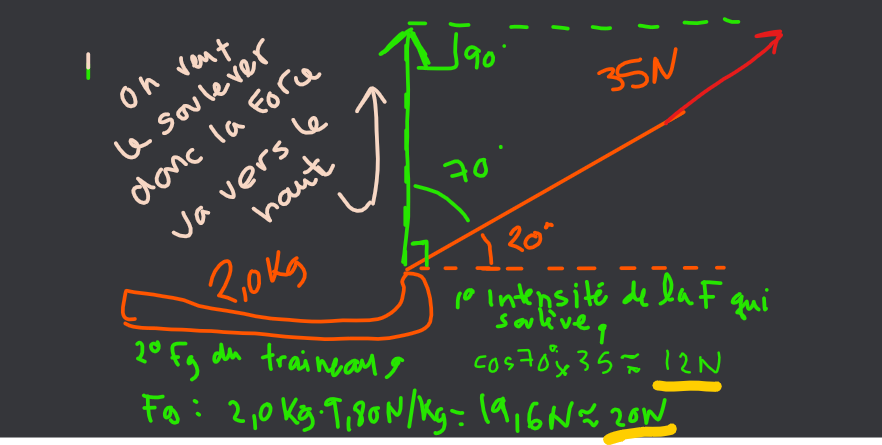 On veut
le soulever
donc la Force
va vers le
haut
90°
35N
70°
20°
2,0Kg
1° intensité de la F qui
soulève,
cos70°x35≈ 12N
2° Fg du traineau,
Fg: 2,0Kg·9,80N/Kg=19,6N≈20N